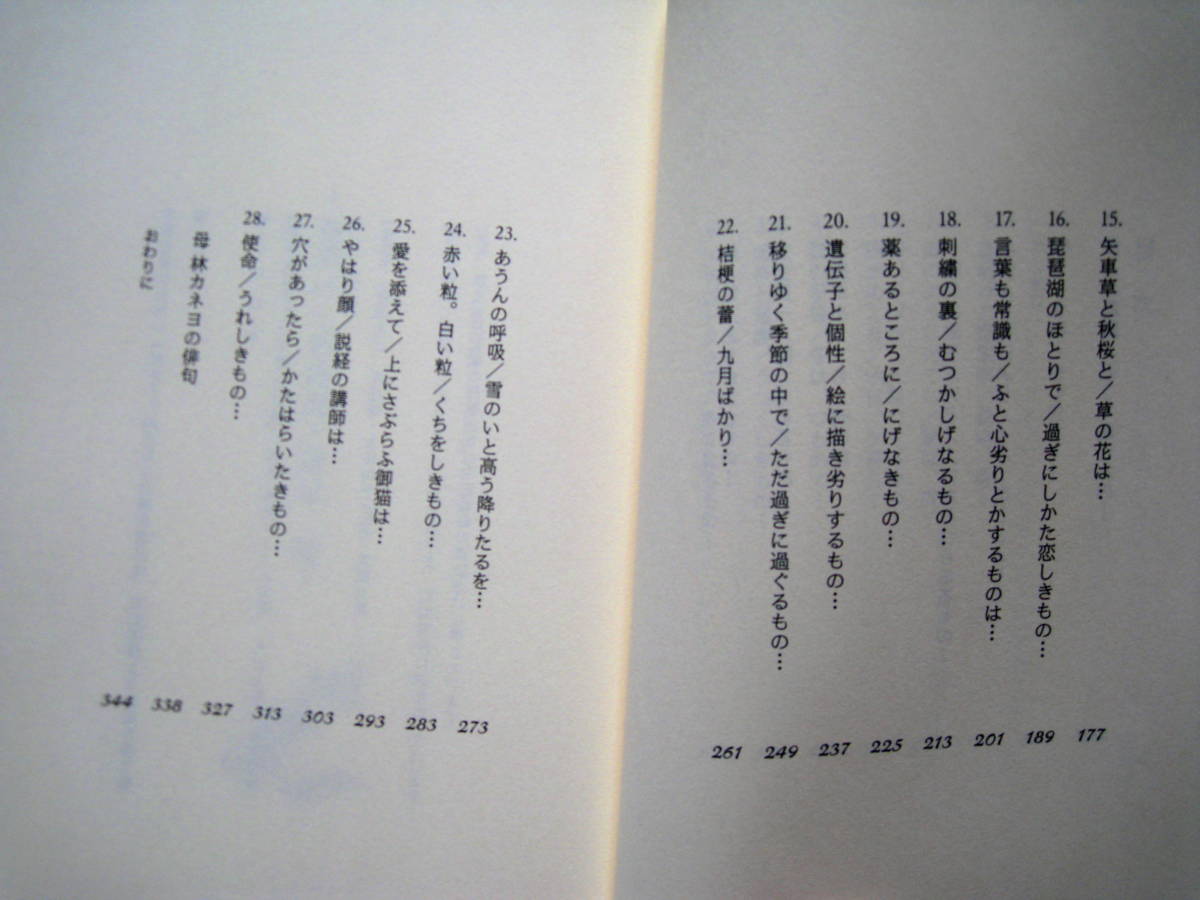 15. 矢車草と秋桜と/草の花は… 177
16. 琵琶湖のほとりで/過ぎにしかた恋しきもの… 189
17. 言葉も常識も/ふと心劣りとかするものは… 201
18. 刺繍の裏/むつかしげなるもの… 213
19. 薬あるところに/にげなきもの… 225
20. 遺伝子と個性/絵に描き劣りするもの… 237
21. 移りゆく季節の中で/ただ過ぎに過ぐるもの… 249
22. 桔梗の蕾/九月ばかり… 261
23. あうんの呼吸/雪のいと高う降りたるを… 273
24. 赤い粒。白い粒/くちをしきもの… 283
25. 愛を添えて/上にさぶらふ御猫は… 293
26. やはり顔/説経の講師は… 303
27. 穴があったら/かたはらいたきもの… 313
28. 使命/うれしきもの… 327
母 林カネヨの俳句 338
おわりに 344